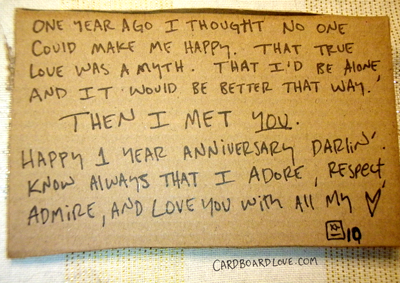 ONE YEAR AGO I THOUGHT NO ONE
COULD MAKE ME HAPPY. THAT TRUE
LOVE WAS A MYTH. THAT I'D BE ALONE
AND IT WOULD BE BETTER THAT WAY.
THEN I MET YOU.
HAPPY 1 YEAR ANNIVERSARY DARLIN'.
KNOW ALWAYS THAT I ADORE, RESPECT
ADMIRE, AND LOVE YOU WITH ALL MY ♡
10
CARDBOARDLOVE.COM